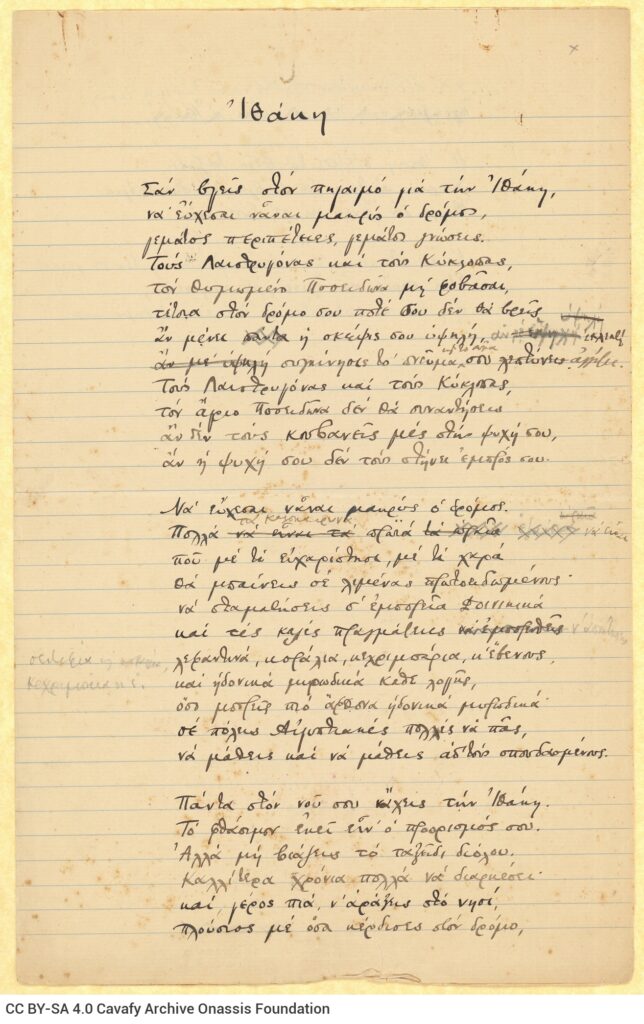 Ἰθάκη
Σὰν βγεῖς στὸν πηγαιμὸ γιὰ τὴν Ἰθάκη,
νὰ εὔχεσαι νἆναι μακρὺς ὁ δρόμος,
γεμάτος περιπέτειες, γεμάτος γνώσεις.
Τοὺς Λαιστρυγόνας καὶ τοὺς Κύκλωπας,
τὸν θυμωμένο Ποσειδῶνα μὴ φοβᾶσαι,
τέτοια στὸν δρόμο σου ποτέ σου δὲν θὰ βρεῖς
ἂν μένει πάντα ἡ σκέψις σου ὑψηλή, ἂν ἐκλεκτὴ
ἂν μὲ ὑψηλὴ συγκίνησις τὸ πνεῦμα σου
Τοὺς Λαιστρυγόνας καὶ τοὺς Κύκλωπας,
τὸν ἄγριο Ποσειδῶνα δὲν θὰ συναντήσεις
ἂν δὲν τοὺς κουβανεῖς μὲς στὴν ψυχή σου,
ἂν ἡ ψυχή σου δὲν τοὺς στήνει ἐμπρός σου.
Νὰ εὔχεσαι νἆναι μακρὺς ὁ δρόμος.
τὰ καλοκαιρινὰ
Πολλὰ νὰ εἶναι τὰ πρωϊὰ νὰ εἶναι
ποῦ μὲ τί εὐχαρίστησι, μὲ τί χαρὰ
θὰ μπαίνεις σὲ λιμένας πρωτοειδωμένους·
νὰ σταματήσεις σ' ἐμπορεῖα Φοινικικὰ
καὶ τὲς καλὲς πραγμάτειες ν' ἀποκτήσεις
σεντέφια καὶ κοράλλια,
κεχριμπάρια κι ἔ.
λεβαντινά, κοράλια, κεχριμπάρια, κ' ἔβενους,
καὶ ἡδονικὰ μυρωδικὰ κάθε λογῆς,
ὅσο μπορεῖς πιὸ ἄφθονα ἡδονικὰ μυρωδικά·
σὲ πόλεις Αἰγυπτιακὲς πολλὲς νὰ πᾶς,
νὰ μάθεις καὶ νὰ μάθεις ἀπ' τοὺς σπουδασμένους.
Πάντα στὸν νοῦ σου νἄχεις τὴν Ἰθάκη.
Τὸ φθάσιμον ἐκεῖ εἶν' ὁ προορισμός σου.
Ἀλλὰ μὴ βιάζεις τὸ ταξεῖδι διόλου.
Καλλίτερα χρόνια πολλὰ νὰ διαρκέσει·
καὶ γέρος πιά, ν' ἀράξεις στὸ νησί,
πλούσιος μὲ ὅσα κέρδισες στὸν δρόμο,
CC BY-SA 4.0 Cavafy Archive Onassis Foundation